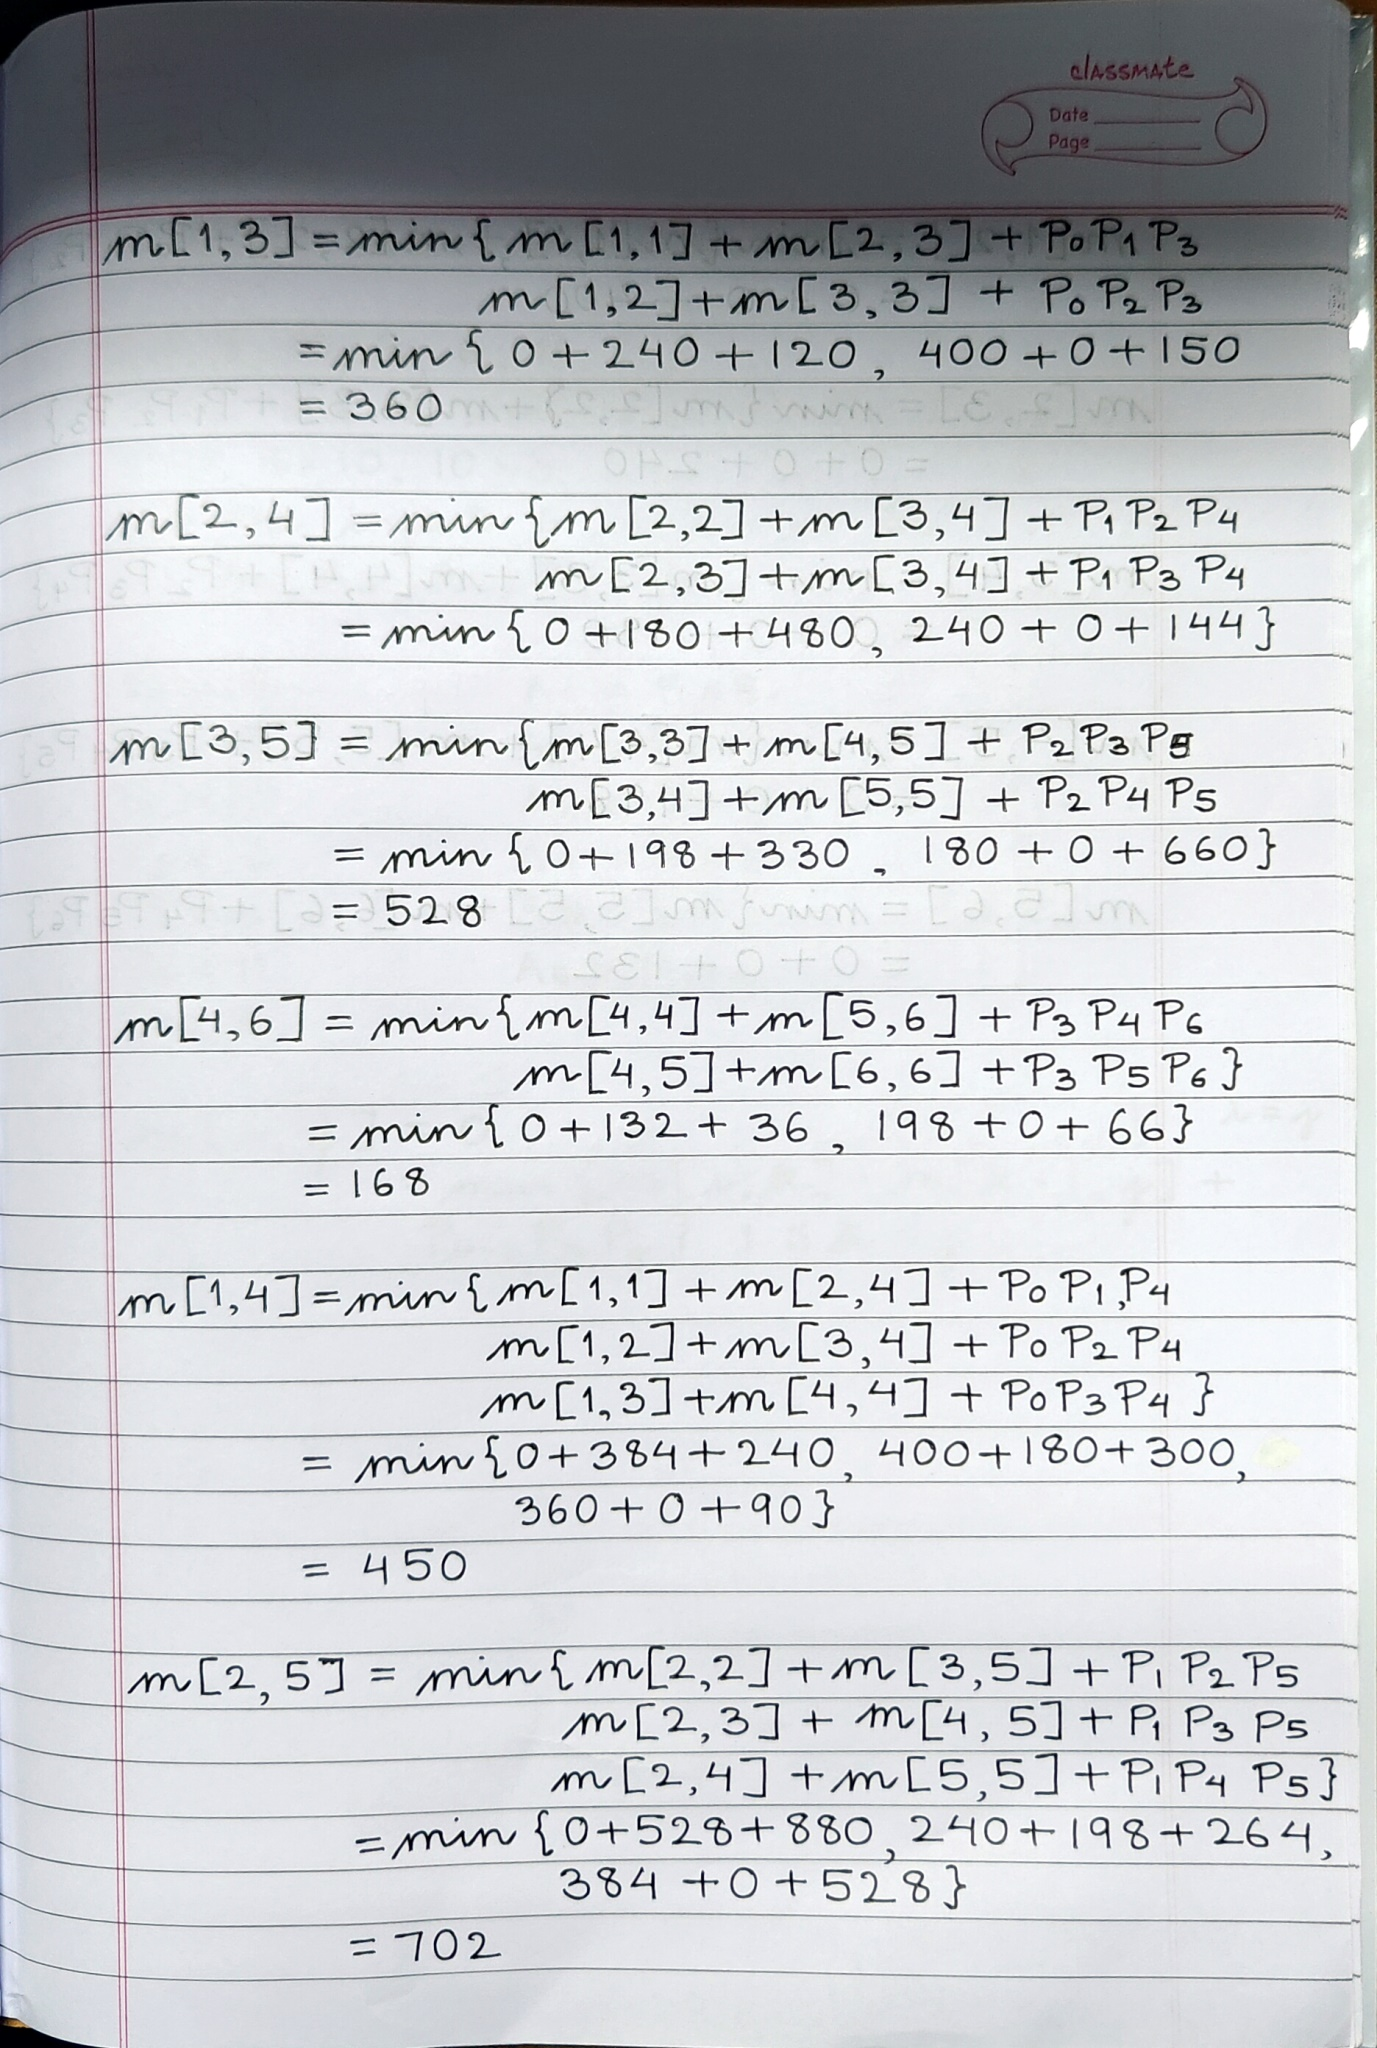 classmate
Date
Page
m[1,3] = min { m[1,1] + m[2,3] + P₀ P₁ P₃
m[1,2] + m[3,3] + P₀ P₂ P₃
= min { 0 + 240 + 120, 400 + 0 + 150
= 360
m[2,4] = min { m[2,2] + m[3,4] + P₁ P₂ P₄
m[2,3] + m[3,4] + P₁ P₃ P₄
= min { 0 + 180 + 480, 240 + 0 + 144 }
m[3,5] = min { m[3,3] + m[4,5] + P₂ P₃ P₅
m[3,4] + m[5,5] + P₂ P₄ P₅
= min { 0 + 198 + 330, 180 + 0 + 660 }
= 528
m[4,6] = min { m[4,4] + m[5,6] + P₃ P₄ P₆
m[4,5] + m[6,6] + P₃ P₅ P₆ }
= min { 0 + 132 + 36, 198 + 0 + 66 }
= 168
m[1,4] = min { m[1,1] + m[2,4] + P₀ P₁ P₄
m[1,2] + m[3,4] + P₀ P₂ P₄
m[1,3] + m[4,4] + P₀ P₃ P₄ }
= min { 0 + 384 + 240, 400 + 180 + 300,
360 + 0 + 90 }
= 450
m[2,5] = min { m[2,2] + m[3,5] + P₁ P₂ P₅
m[2,3] + m[4,5] + P₁ P₃ P₅
m[2,4] + m[5,5] + P₁ P₄ P₅ }
= min { 0 + 528 + 880, 240 + 198 + 264,
384 + 0 + 528 }
= 702